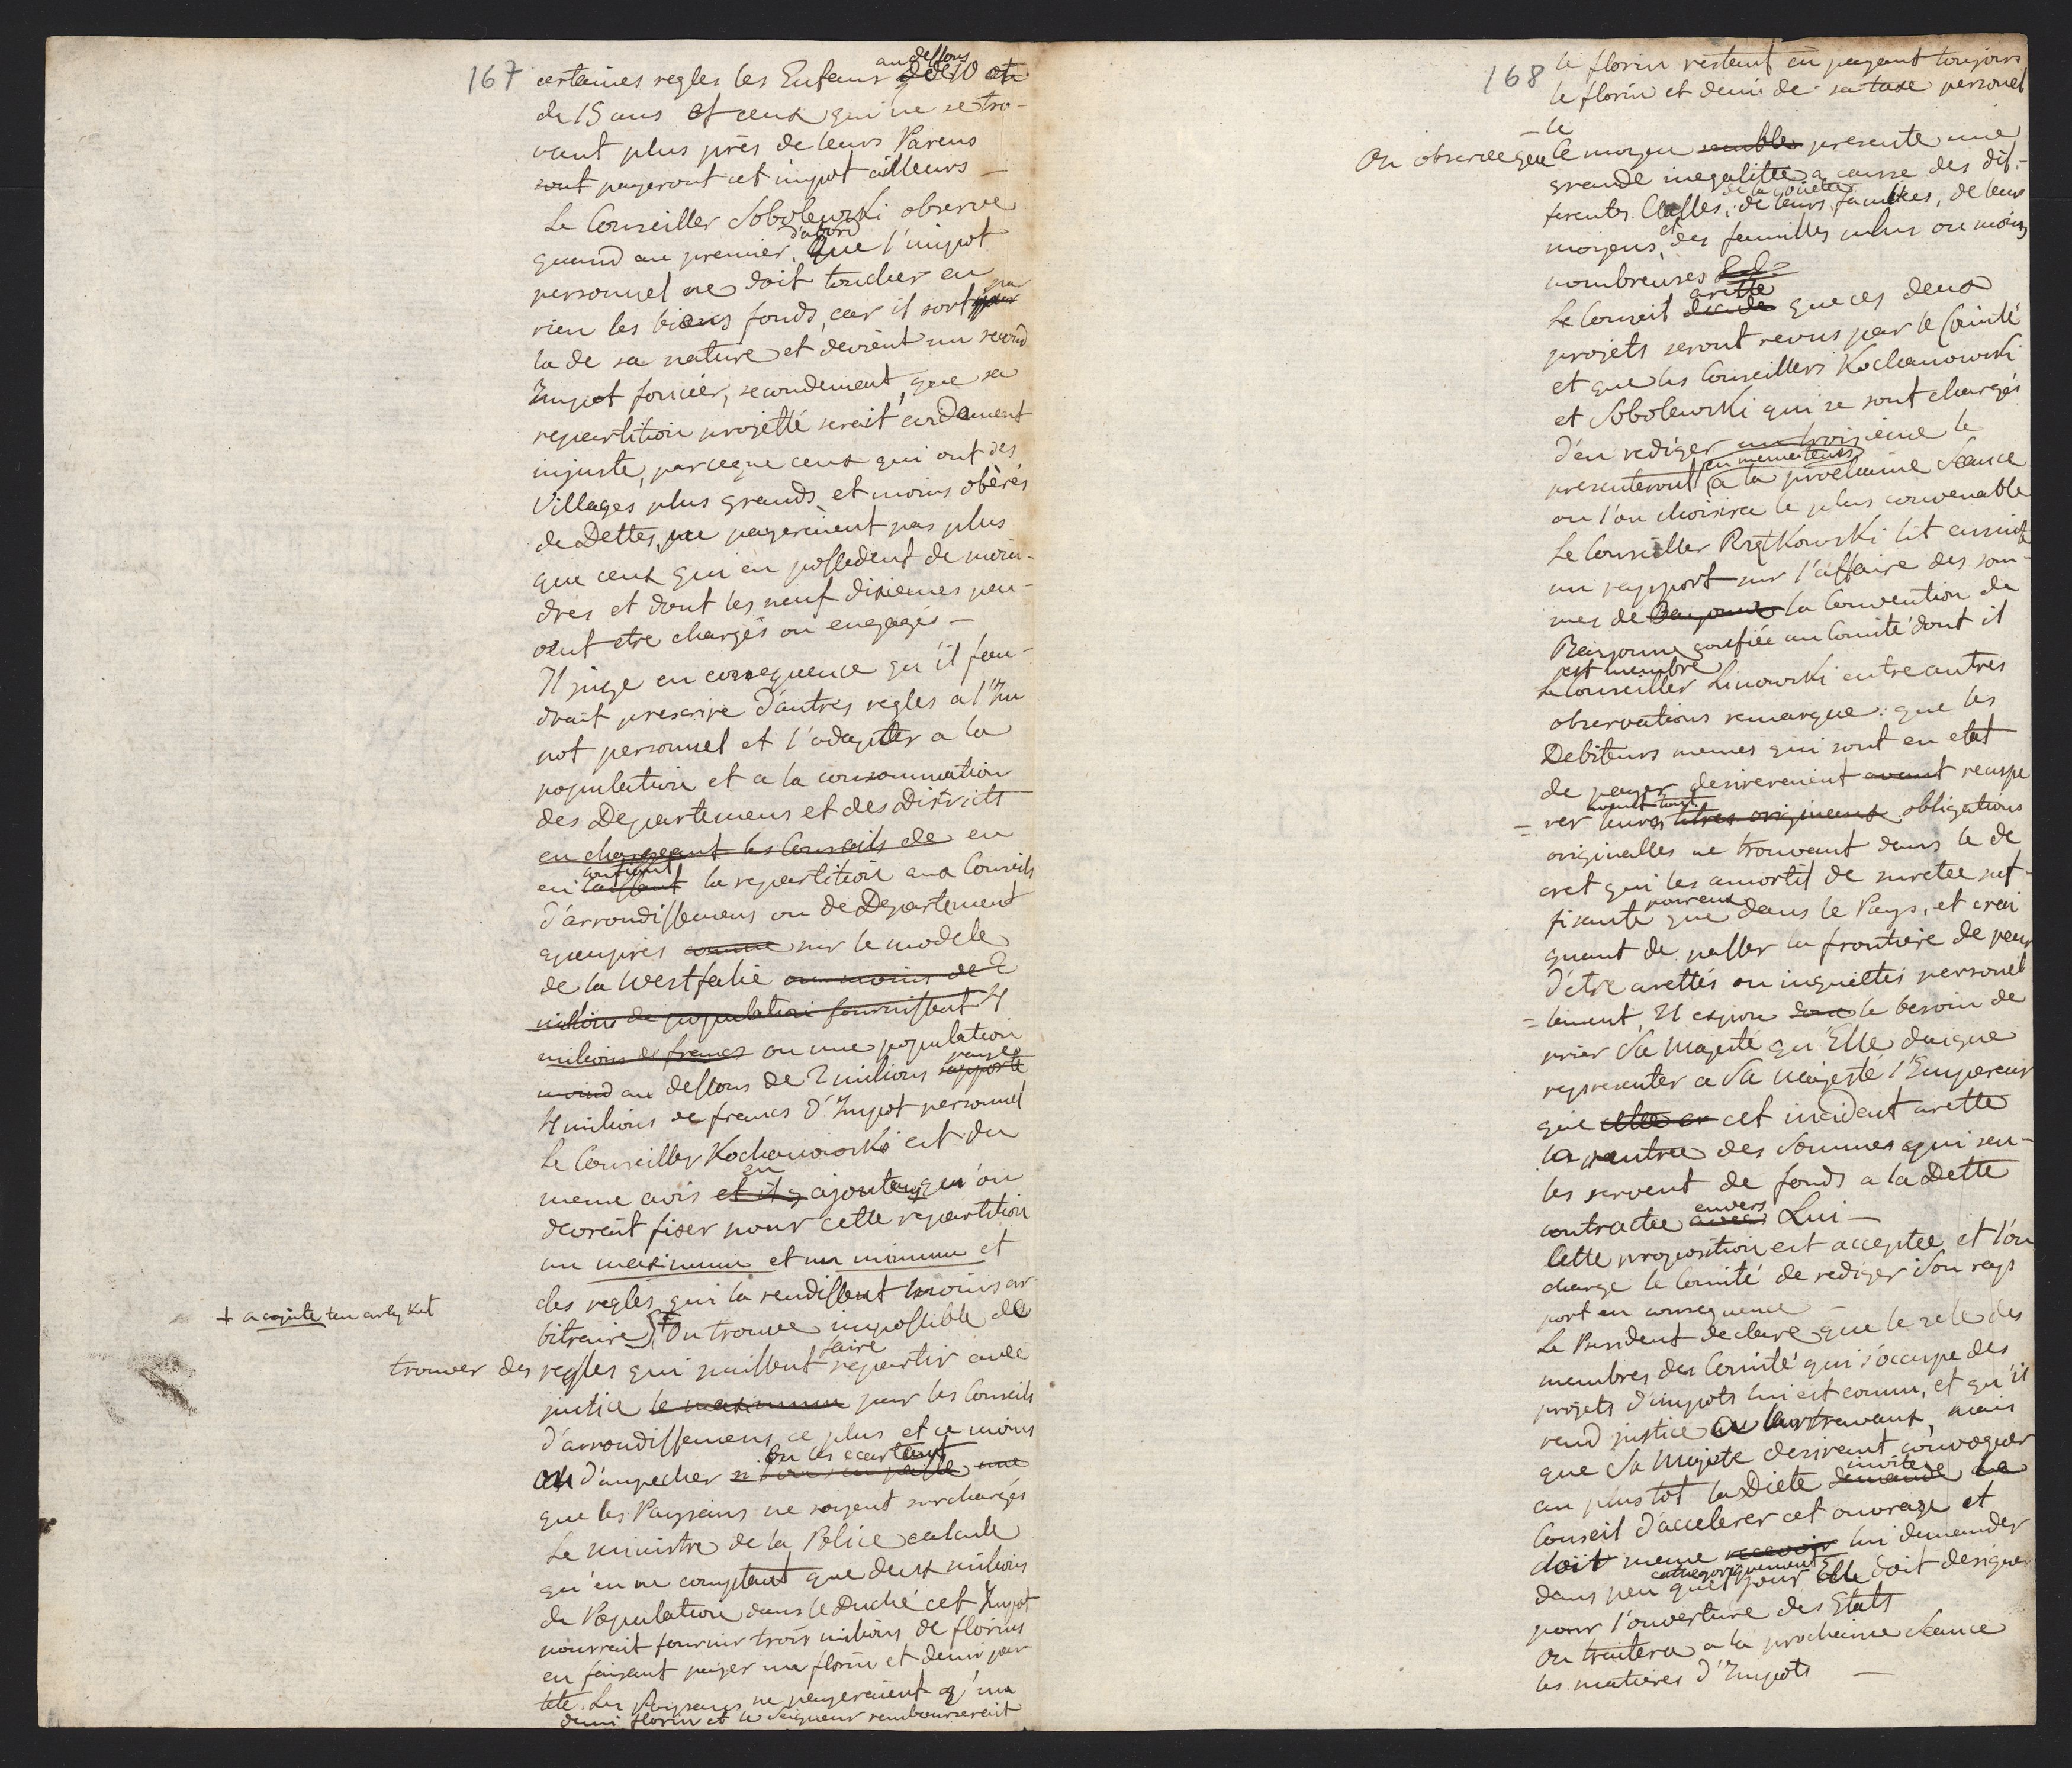 167
certaines regles les Enfans au dessous de 10 et
de 15 ans et ceux qui ne se tro-
vant plus près de leurs Parens
sont payeront cet impot ailleurs —
Le Conseiller Sobolewski observe
quand au premier d'abord Que l'impot
personnel ne doit toucher en
rien les biens fonds, car il sort par
la de sa nature et devient un second
Impot foncier, secondement, que sa
repartition projetté serait
injuste, parceque ceux qui ont des
Villages plus grands et moins obèrés
de Dettes, ne payeroient pas plus
que ceux qui en possedent de moin-
dres et dont les neuf dixiemes peu-
vent etre chargés ou engagés —
Il juge en consequence qu'il fau-
drait prescrire d'autres regles a l'Im
pot personnel et l'adapter a la
population et a la consommation
des Departemens et des Districts
en chargeant les Conseils de en
en laissant confiant la repartition aux Conseils
d'arrondissemens ou de Departement
apeuprès comme sur le modele
de la Westfalie ou moins de 2
millions de population fournissent 4
milions de francs ou une population
moins au dessous de 2 milions rapporte paye
4 milions de francs d'Impot personnel
Le Conseiller Kochanowski est du
meme avis et il y en ajoutant qu'on
devroit fixer pour cette repartition
un maximum et un minimum et
des regles qui la rendissent moins ar-
bitraire + On trouve impossible de
+ a cajute ten artykuł
trouver des regles qui puissent faire repartir avec
justice le maximum par les Conseils
d'arrondissemens ce plus et ce moins
ou d'anpecher en les ecartant
que les Paysans ne soyent surchargés
Le ministre de la Police calcule
qu'en ne comptant que deux milions
de Population dans le Duché cet Impot
pourrait fournir trois milions de florins
en faisant payer un florin et demi par
tête. Les Paysans ne payeraient qu'un
demi florin et le Seigneur rembourserait
168
le florin restant en payant toujours
le florin et demi de sa taxe personel
le
On observe que Ce moyen semble presente une
grande inegalitée a cause des dif-
ferentes Classes, de la société de leurs facultées, de leurs
moyens, et des familles plus ou moins
nombreuses
Le Conseil decide arette que ces deux
projets seront revus par le Comité
et que les Conseillers Kochanowski
et Sobolewski qui se sont chargés
d'en rediger un troisieme le
presenteront en meme tems a la prochaine Seance
ou l'on choisira le plus convenable
Le Conseiller Rętkowski lit ensuite
un rapport sur l'affaire des som-
mes de Bayonne la Convention de
Bayonne confiée au Comité dont il
est membre
Le Conseiller Linowski entre autres
observations remarque: que les
Debiteurs memes qui sont en etat
de payer desireroient avant recupe
= rer avant tout leurs titres originaux obligations
originalles ne trouvant dans le de
cret qui les amortit de suretée suf-
fisante pour eux que dans le Pays, et crai
gnant de passer la frontiere de peur
d'être arettés ou inquiettés personel
= lement, Il expose donc le besoin de
prier Sa Majesté qu'Elle daigne
representer a Sa Majesté l'Empereur
que cet incident arette
la rentrée des Sommes qui seu-
les servent de fonds a la Dette
contractée avec envers Lui —
Cette proposition est acceptée et l'on
charge le Comité de rediger son rap
port en consequence
Le President declare que le zele des
membres du Comité qui s'occupe des
projets d'impots lui est connu, et qu'il
rend justice a leur travaux, mais
que Sa Majeste desirant convoquer
au plus tot la Diete demande invite le
Conseil d'accelerer cet ouvrage et
doit meme recevoir lui demander
dans peu cathegoriquement quel jour Elle doit designer
pour l'ouverture des Etats
On traitera a la prochaine Seance
les matieres d'Impots —